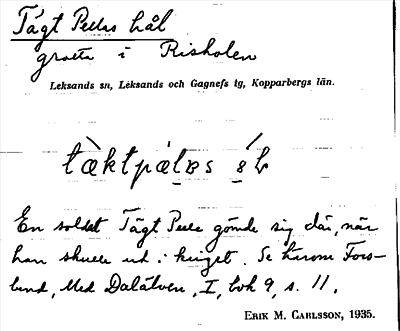 Tägt Pelles hål
grotta i Risholen
Leksands sn, Leksands och Gagnefs tg, Kopparbergs län.
En soldat Tägt Pelle gömde sig där, när
han skulle ut i kriget. Se härom Fors-
lund, Med Dalälven, I, bok 9, s. 11.
ERIK M. CARLSSON, 1935.